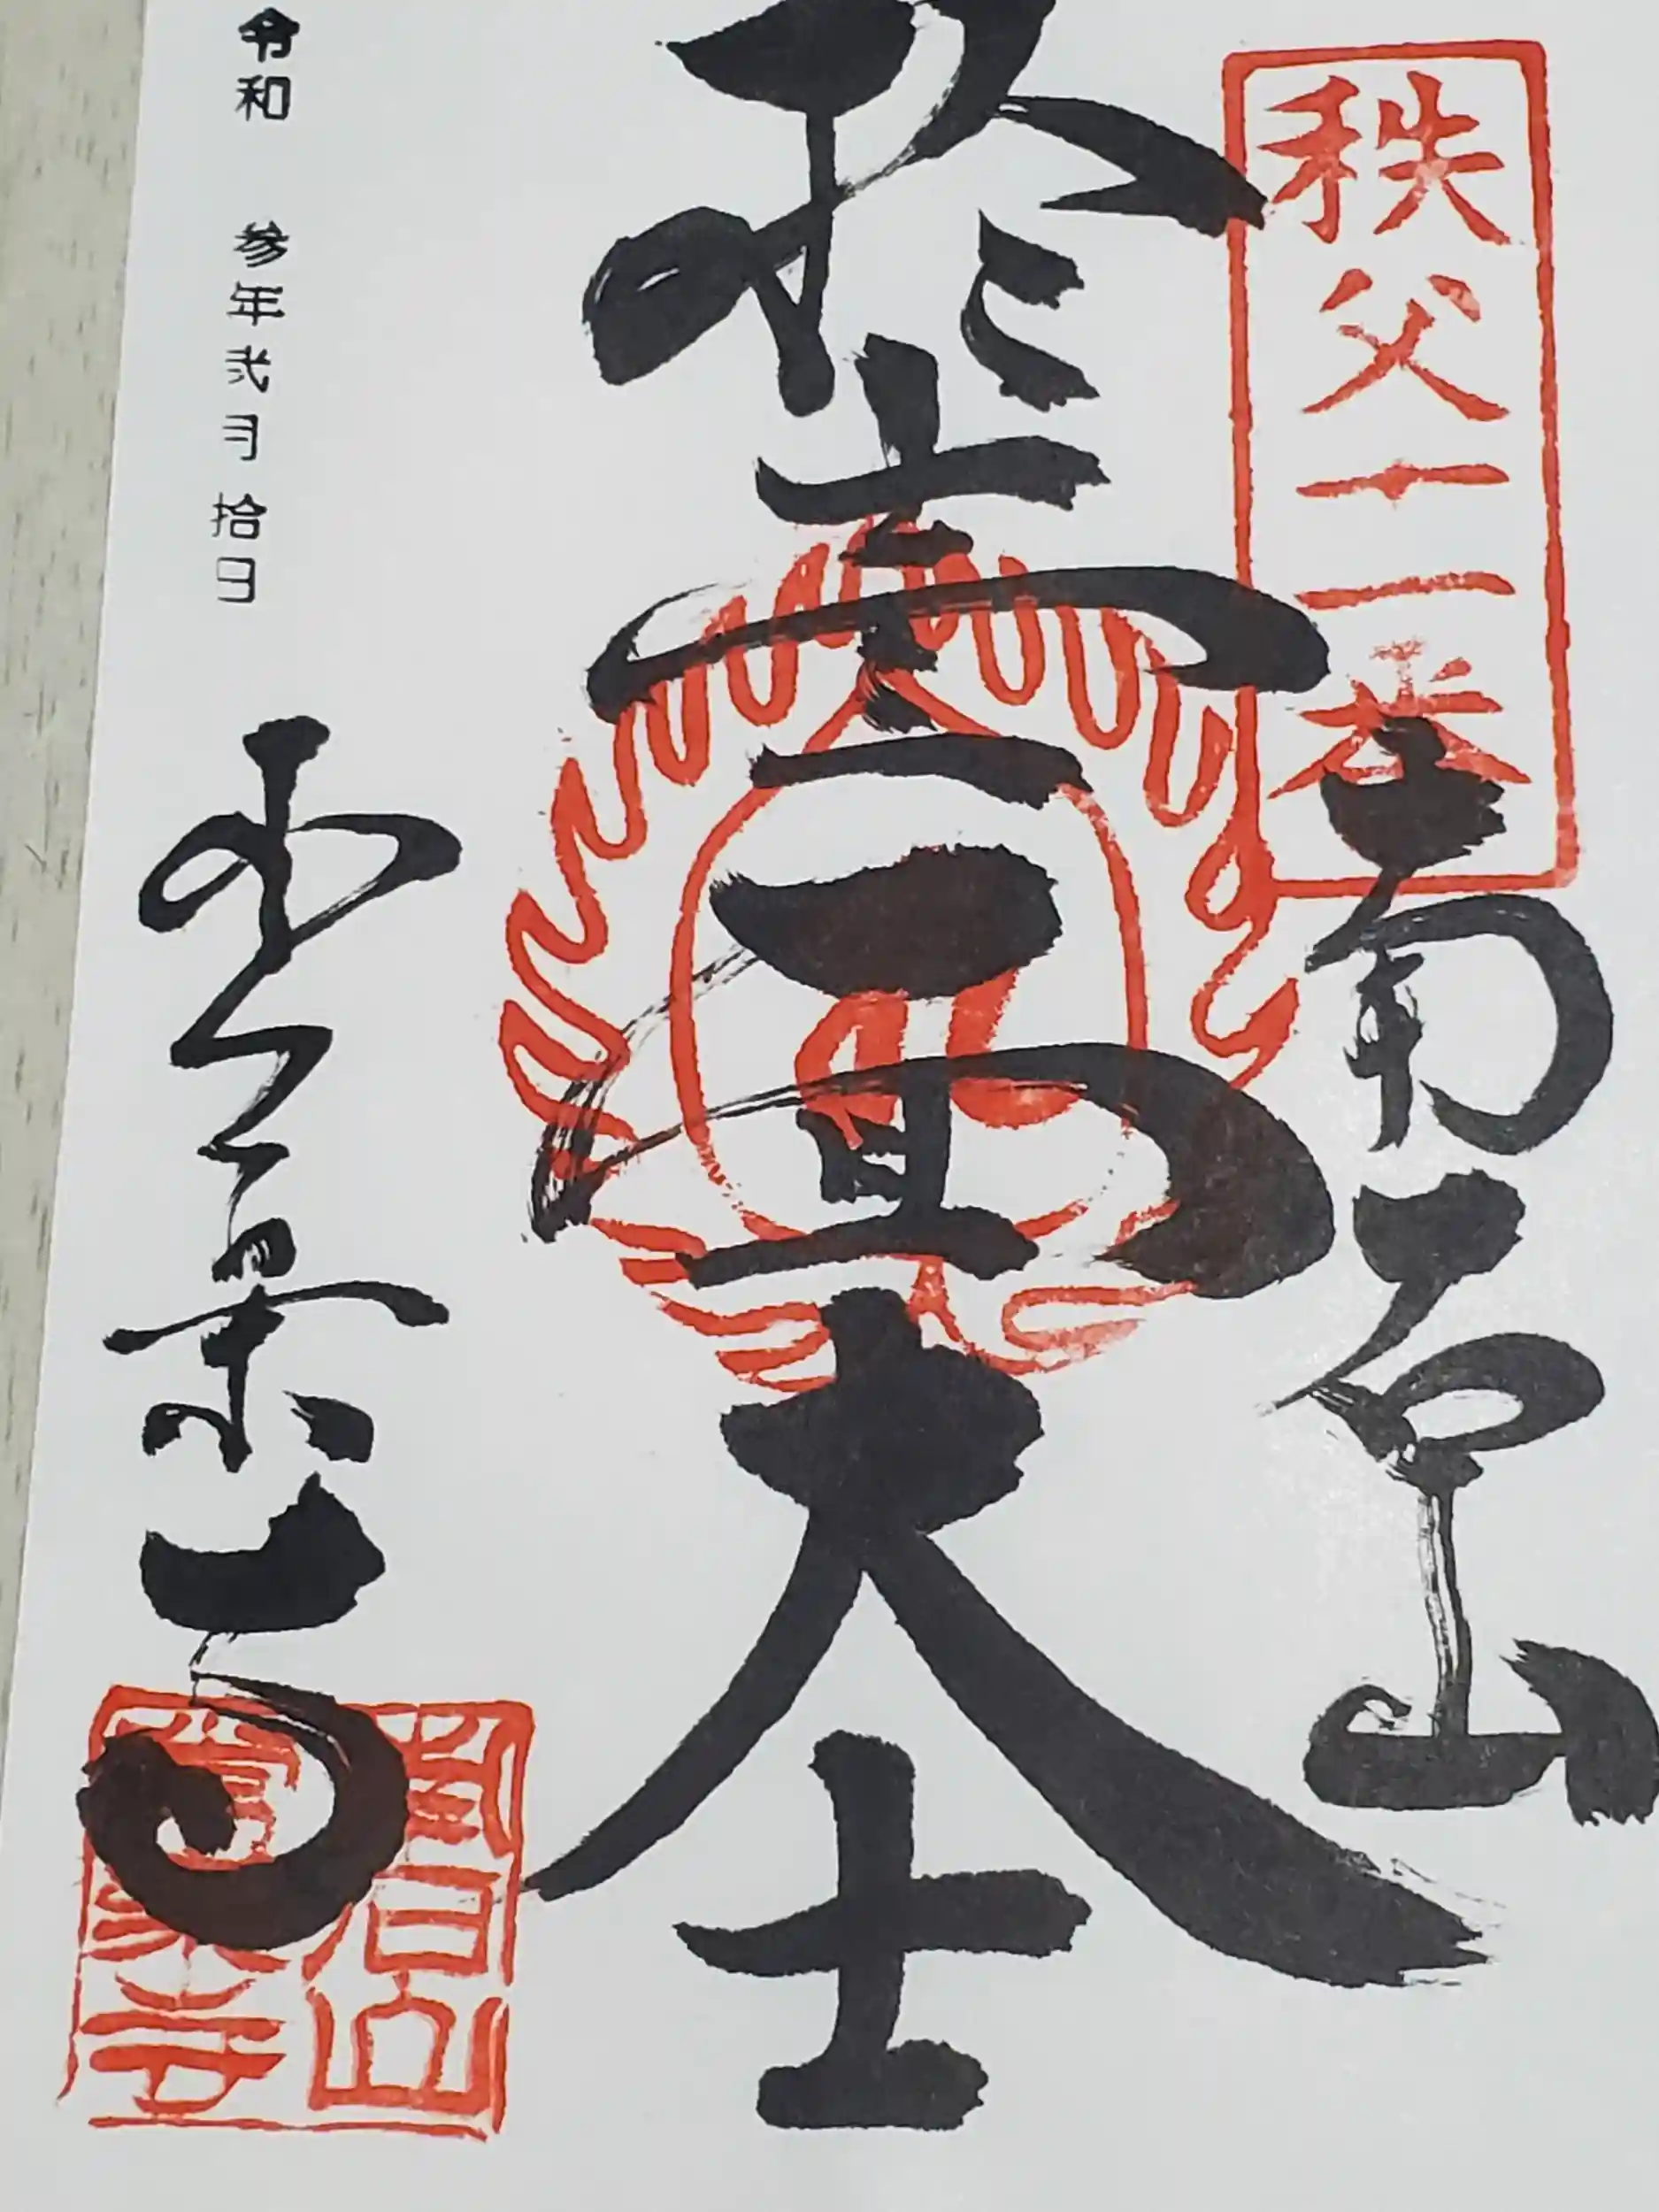 秩父十一番
南石山
拾壹面大士
令和 参年弐月拾日
常楽寺
南石山
常楽寺